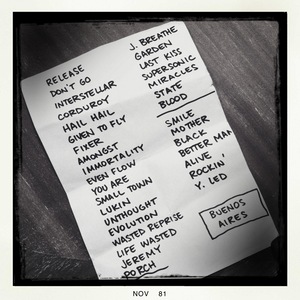 RELEASE
DON'T GO
INTERSTELLAR
CORDUROY
HAIL HAIL
GIVEN TO FLY
FIXER
AMONGST
IMMORTALITY
EVEN FLOW
YOU ARE
SMALL TOWN
LUKIN
UNTHOUGHT
EVOLUTION
WASTED REPRISE
LIFE WASTED
JEREMY
PORCH
J. BREATHE
GARDEN
LAST KISS
SUPERSONIC
MIRACLES
STATE
BLOOD
SMILE
MOTHER
BLACK
BETTER MAN
ALIVE
ROCKIN'
Y. LED
BUENOS
AIRES
NOV 81